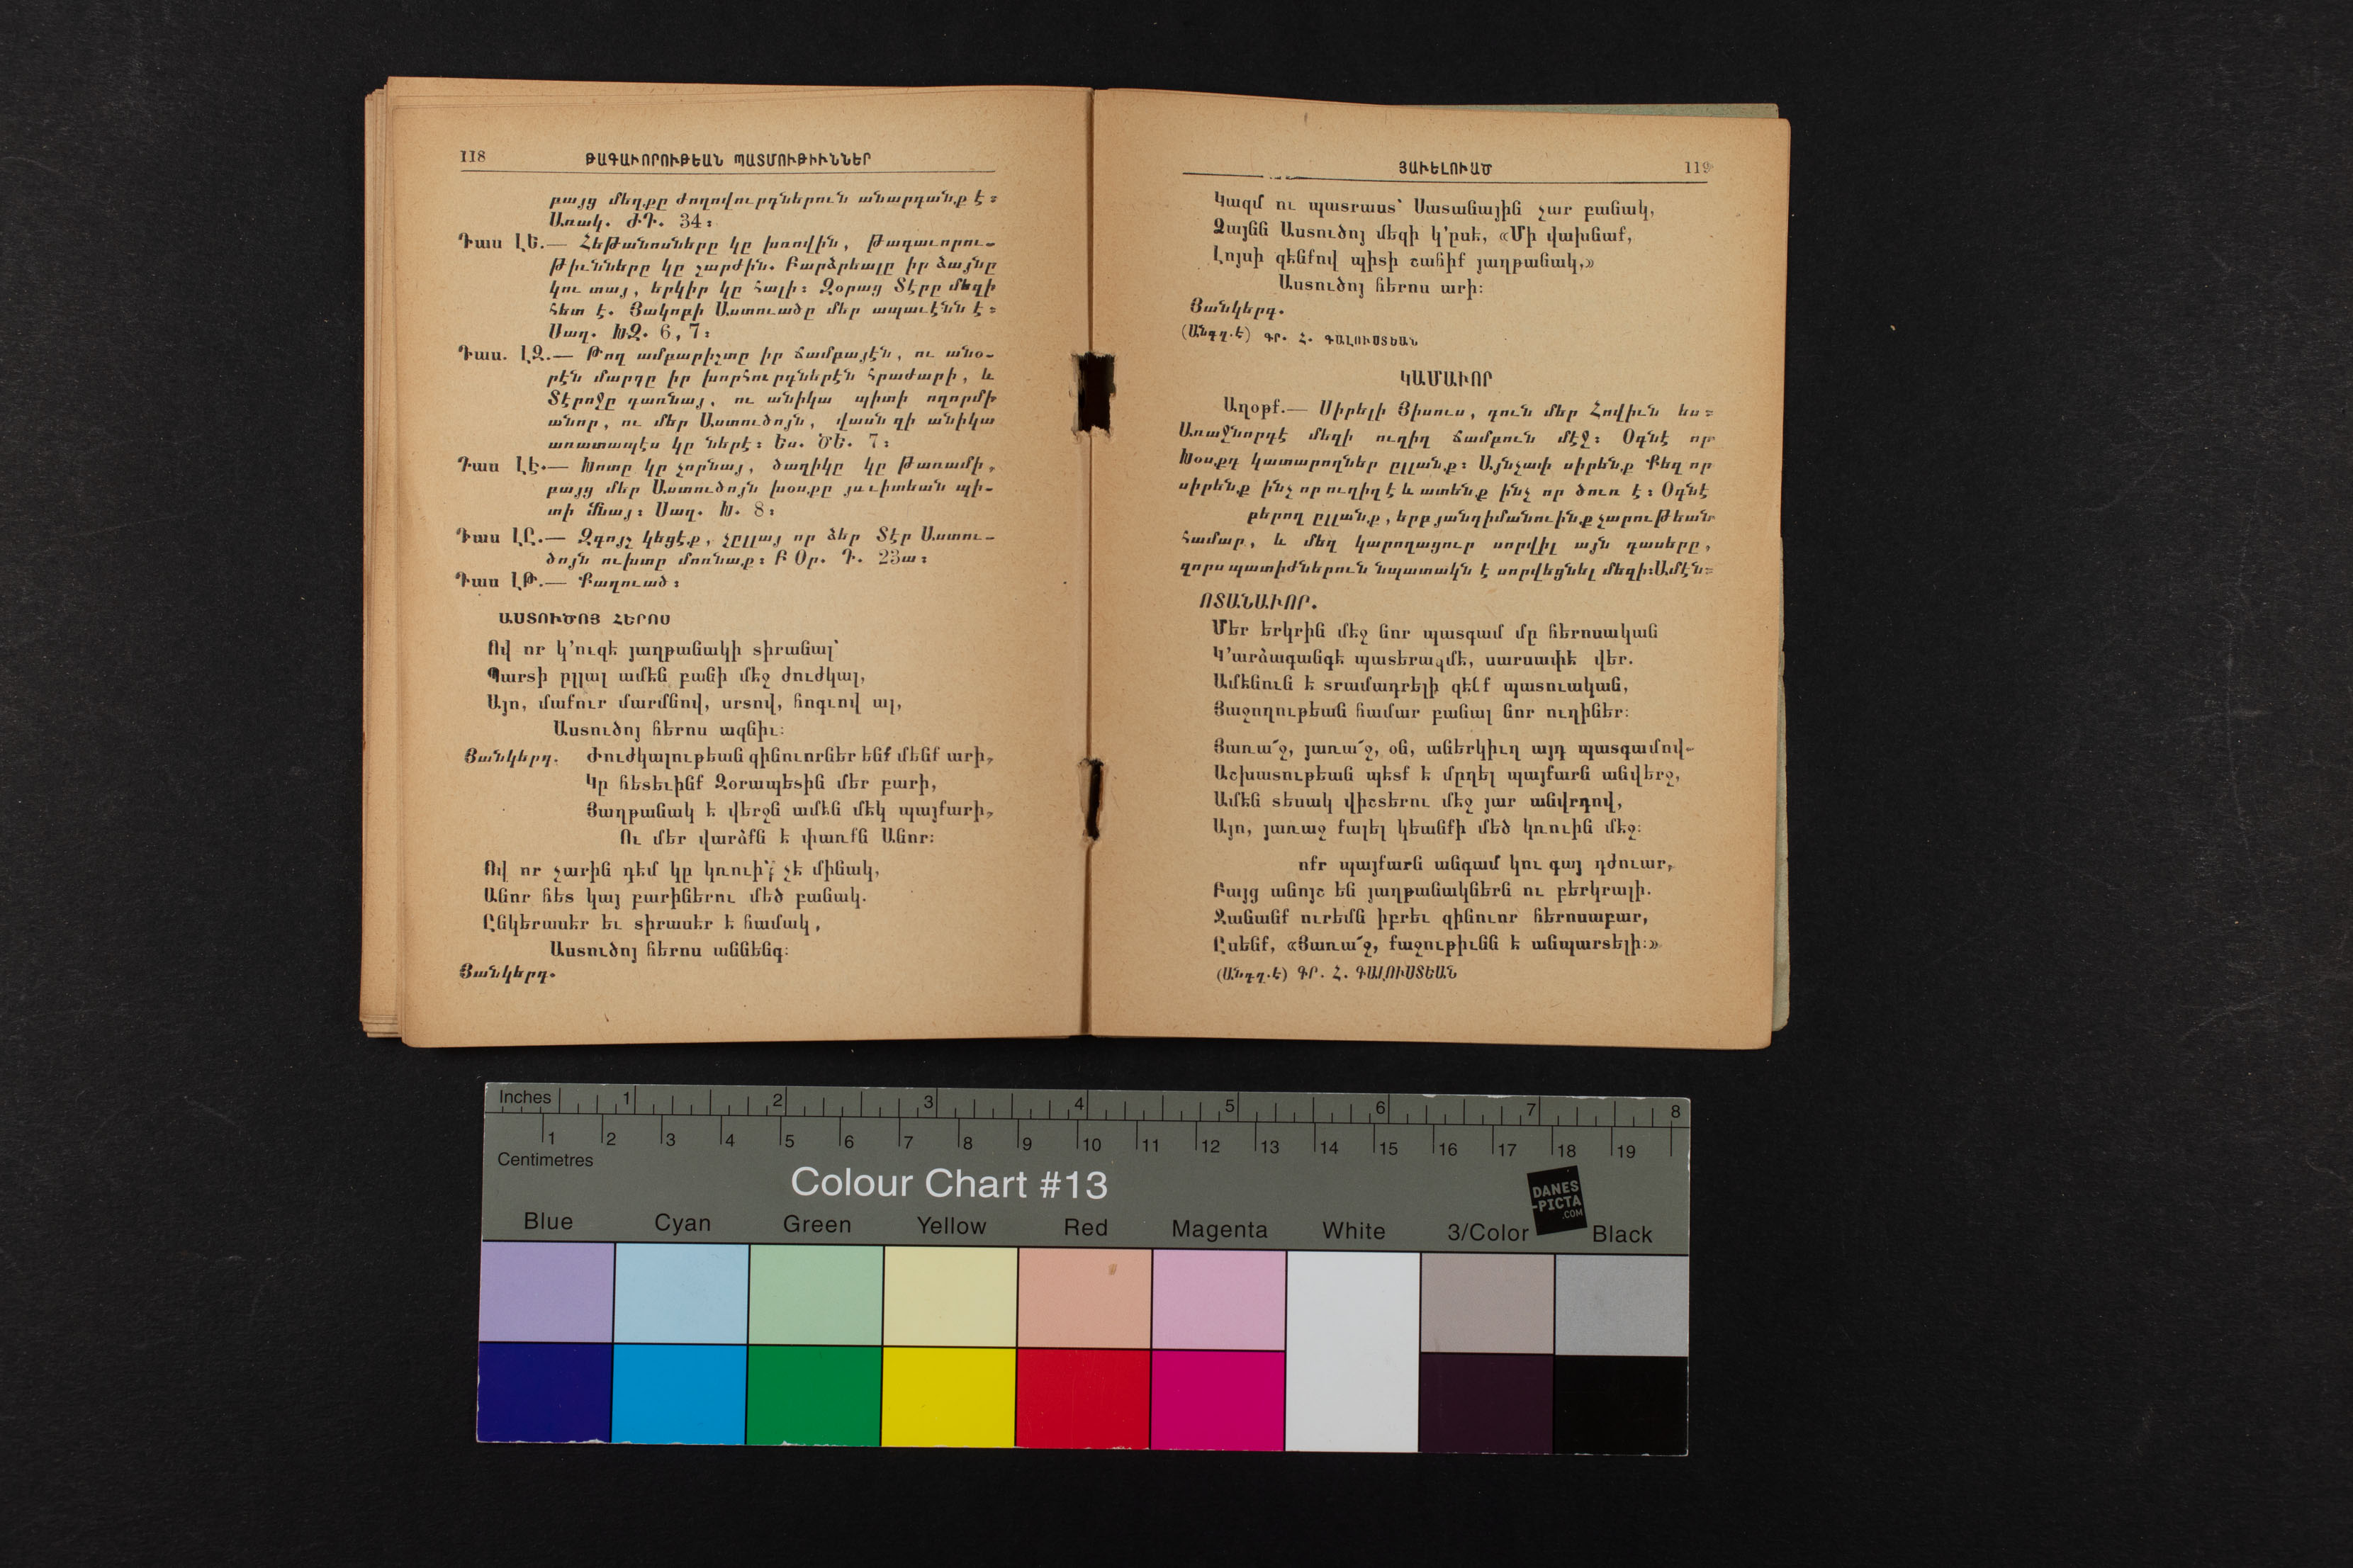 118 ԹԱԳԱՒՈՐՈՒԹԵԱՆ ՊԱՏՄՈՒԹԻՒՆՆԵՐ
բայց մեղքը ժողովուրդներուն անարդանք է։
Առակ. ԺԴ. 34։
Դաս ԼԵ.— Հեթանոսները կը խռովին, թագաւորու-
թիւնները կը շարժին. Բարձրեալը իր ձայնը
կու տայ, երկիր կը հալի։ Զօրաց Տէրը մեզի
հետ է. Յակոբի Աստուածը մեր ապաւէնն է։
Սաղ. ԽԶ. 6, 7։
Դաս. ԼԶ.— Թող ամբարիշտը իր ճամբայէն, ու անօ-
րէն մարդը իր խորհուրդներէն հրաժարի, և
Տէրոջը դառնայ, ու անիկա պիտի ողորմի
անոր, ու մեր Աստուծոյն, վասն զի անիկա
առատապէս կը ներէ։ Ես. ԾԵ. 7։
Դաս ԼԷ.— Խոտը կը չորնայ, ծաղիկը կը թառամի,
բայց մեր Աստուծոյն խօսքը յաւիտեան պի-
տի մնայ։ Սաղ. Խ. 8։
Դաս ԼԸ.— Զգոյշ կեցէք, չըլլայ որ ձեր Տէր Աստու-
ծոյն ուխտը մոռնաք։ Բ Օր. Դ. 23ա։
Դաս ԼԹ.— Քաղուած։
ԱՍՏՈՒԾՈՅ ՀԵՐՈՍ
Ով որ կ՚ուզէ յաղթանակի տիրանալ՝
Պարտի ըլլալ ամէն բանի մէջ ժուժկալ,
Այո, մաքուր մարմնով, սրտով, հոգւով ալ,
Աստուծոյ հերոս ազնիւ։
Յանկերգ. Ժուժկալութեան զինուորներ ենք մենք արի,
Կը հետեւինք Զօրապետին մեր բարի,
Յաղթանակ է վերջն ամէն մէկ պայքարի,
Ու մեր վարձքն է փառքն Անոր։
Ով որ չարին դէմ կը կռուի՝ չէ մինակ,
Անոր հետ կայ բարիներու մեծ բանակ.
Ընկերասէր եւ տիրասէր է համակ,
Աստուծոյ հերոս աննենգ։
Յանկերգ.
ՅԱՒԵԼՈՒԱԾ 119
Կազմ ու պատրաստ՝ Սատանային չար բանակ,
Ձայնն Աստուծոյ մեզի կ՚ըսէ, «Մի վախնաք,
Լոյսի զէնքով պիտի շահիք յաղթանակ,»
Աստուծոյ հերոս արի։
Յանկերգ.
(Անգղ.է) ԳՐ. Հ. ԳԱԼՈՒՍՏԵԱՆ
ԿԱՄԱՒՈՐ
Աղօթք.— Սիրելի Յիսուս, դուն մեր Հովիւն ես։
Առաջնորդէ մեզի ուղիղ ճամբուն մէջ։ Օգնէ որ
Խօսքդ կատարողներ ըլլանք։ Այնչափ սիրենք Քեզ որ
սիրենք ինչ որ ուղիղ է և ատենք ինչ որ ծուռ է։ Օգնէ
բերող ըլլանք, երբ յանդիմանուինք չարութեան
համար, և մեզ կարողացուր սորվիլ այն դասերը,
զորս պատիժներուն նպատակն է սորվեցնել մեզի։Ամէն։
ՈՏԱՆԱՒՈՐ.
Մեր երկրին մէջ նոր պատգամ մը հերոսական
Կ՚արձագանգէ պատերազմէ, սարսափէ վեր.
Ամենուն է տրամադրելի զէնք պատուական,
Յաջողութեան համար բանալ նոր ուղիներ։
Յառա՜ջ, յառա՜ջ, օն, աներկիւղ այդ պատգամով-
Աշխատութեան պէտք է մըղել պայքարն անվերջ,
Ամէն տեսակ վիշտերու մէջ յար անվրդով,
Այո, յառաջ քալել կեանքի մեծ կռուին մէջ։
ոքր պայքարն անգամ կու գայ դժուար,
Բայց անոյշ են յաղթանակներն ու բերկրալի.
Ջանանք ուրեմն իբրեւ զինուոր հերոսաբար,
Ըսենք, «Յառա՜ջ, քաջութիւնն է անպարտելի։»
(Անգղ.է) ԳՐ. Հ. ԳԱԼՈՒՍՏԵԱՆ
Inches 1 2 3 4 5 6 7 8
1 2 3 4 5 6 7 8 9 10 11 12 13 14 15 16 17 18 19
Centimetres
Colour Chart #13
DANES
-PICTA
.COM
Blue Cyan Green Yellow Red Magenta White 3/Color Black